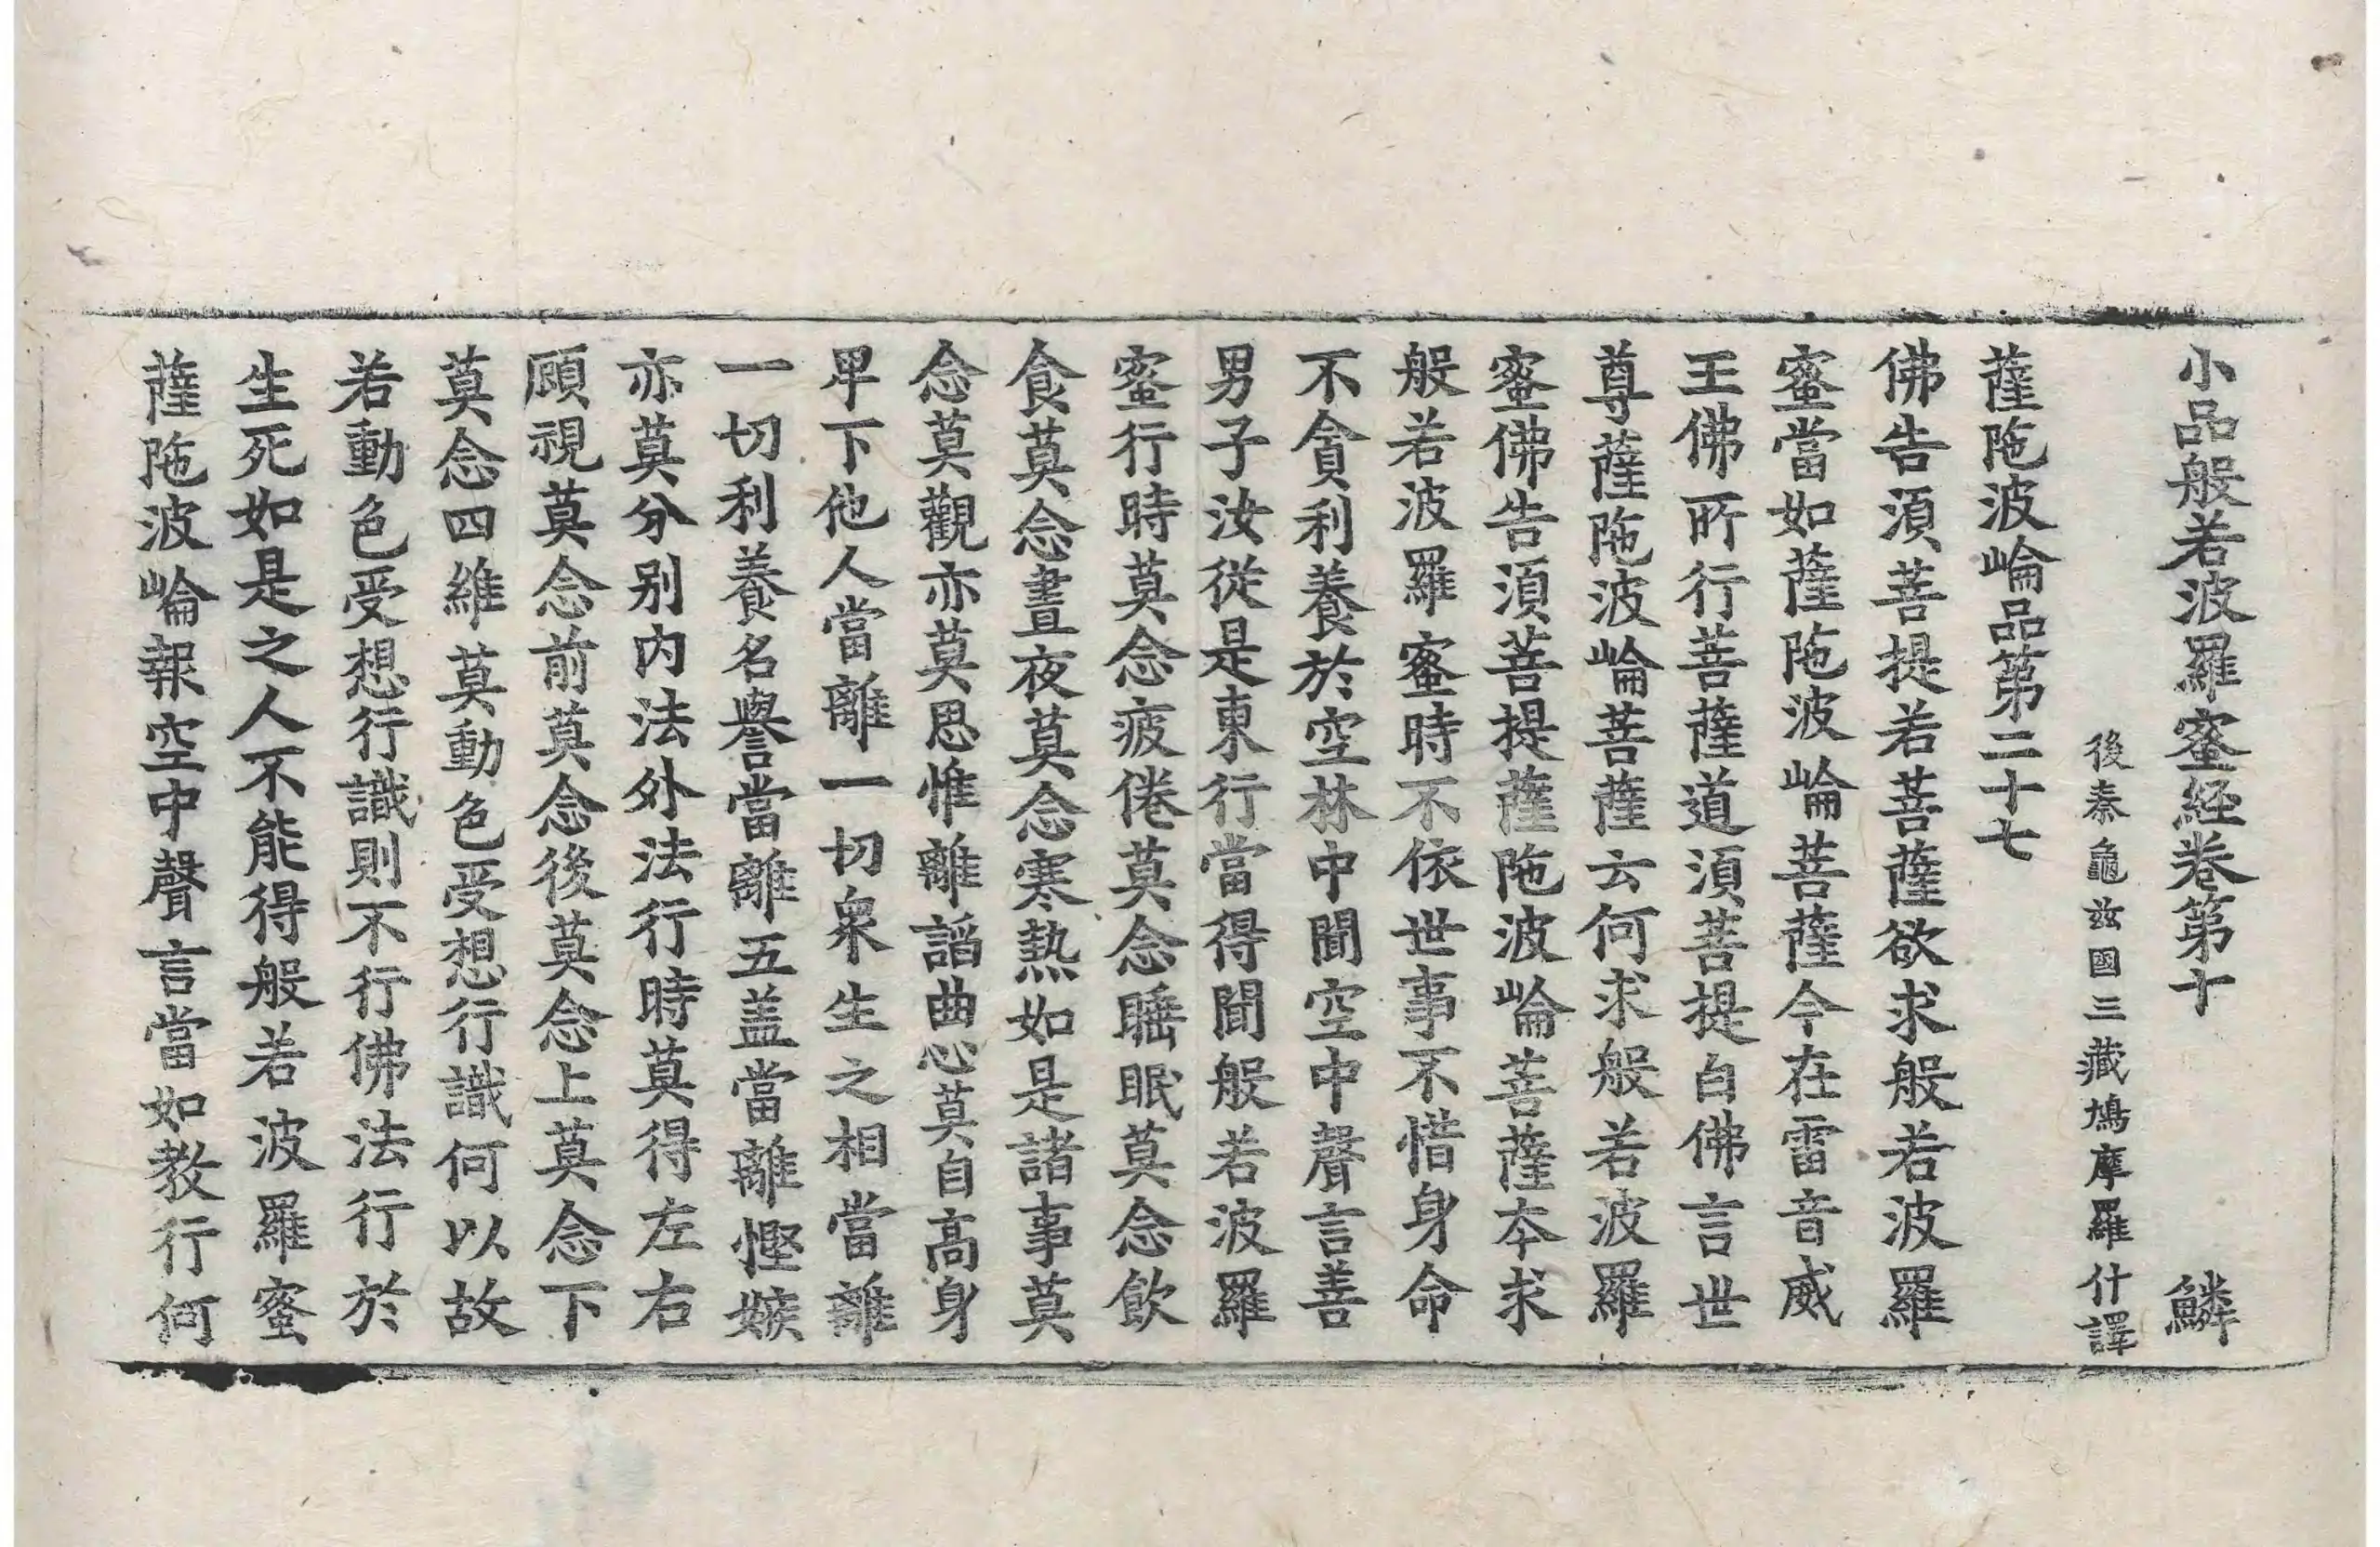 小品般若波羅蜜経卷第十 鱗
後秦龜茲國三藏鳩摩羅什譯
薩陁波崘品第二十七
佛告湏菩提若菩薩欲求般若波羅
蜜當如薩陁波崘菩薩今在雷音威
王佛所行菩薩道湏菩提白佛言世
尊薩陁波崘菩薩云何求般若波羅
蜜佛告湏菩提薩陁波崘菩薩本求
般若波羅蜜時不依世事不惜身命
不貪利養於空林中聞空中聲言善
男子汝從是東行當得聞般若波羅
蜜行時莫念疲倦莫念睡眠莫念飲
食莫念晝夜莫念寒熱如是諸事莫
念莫觀亦莫思惟離謟曲心莫自高身
卑下他人當離一切衆生之相當離
一切利養名譽當離五盖當離慳嫉
亦莫分别内法外法行時莫得左右
顧視莫念前莫念後莫念上莫念下
莫念四維莫動色受想行識何以故
若動色受想行識則不行佛法行於
生死如是之人不能得般若波羅蜜
薩陁波崘報空中聲言當如教行何